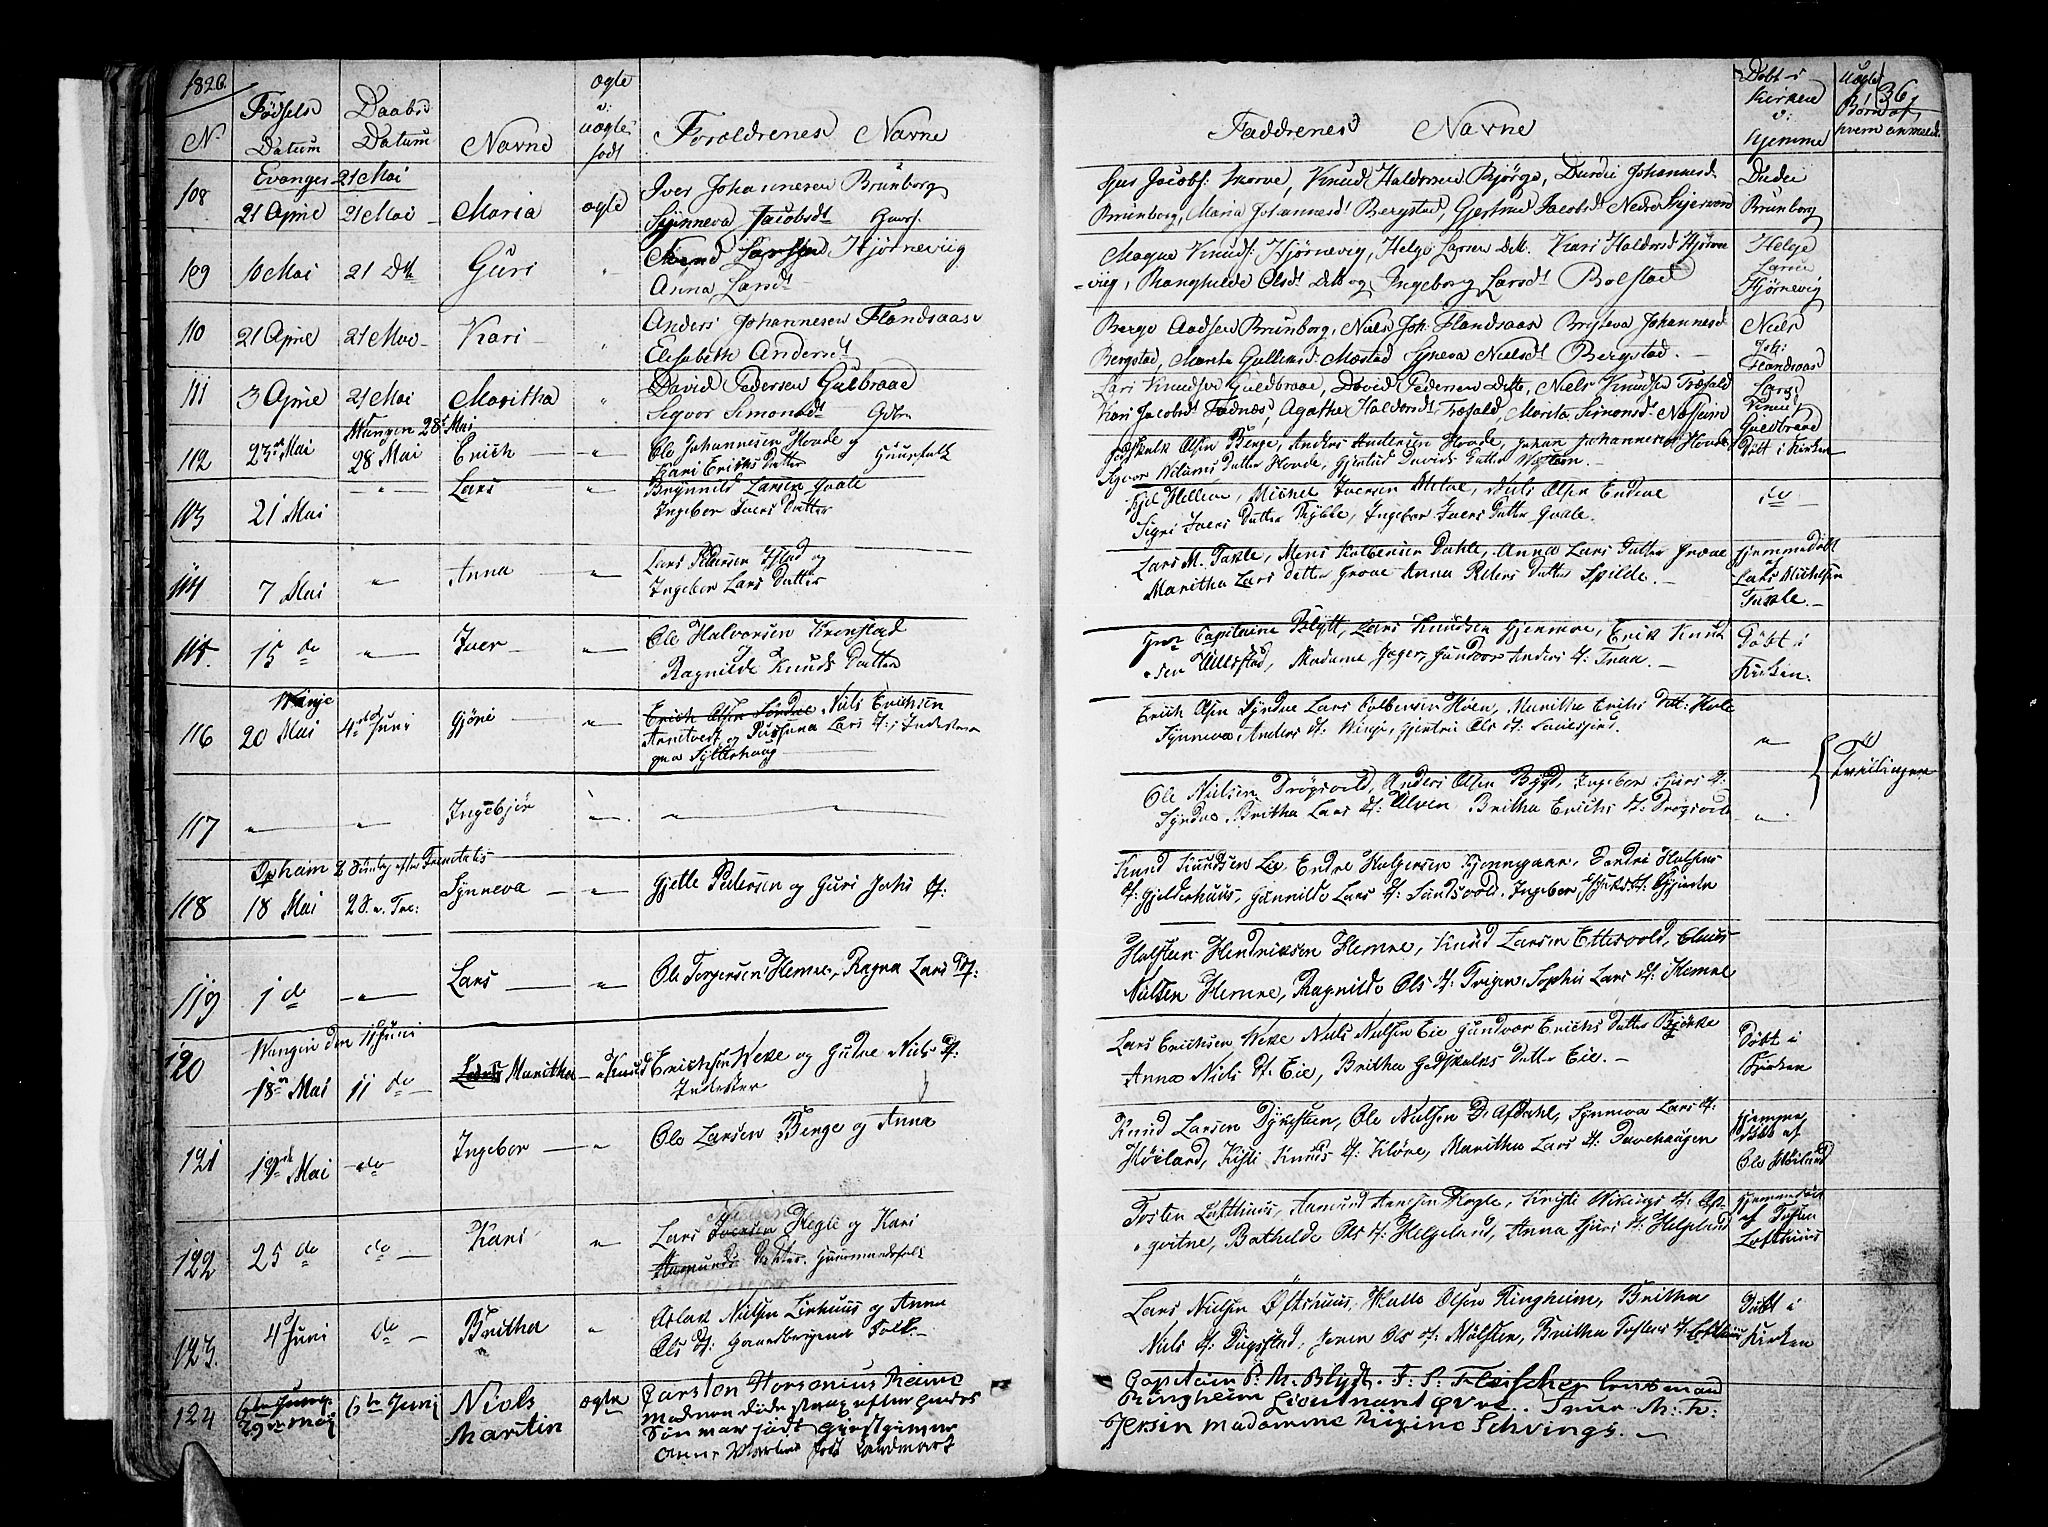 1820.
N.
Fødsels Datum
Daabs Datum
Navne
ægte v: uægte født
Forældrenes Navne
Faddrenes Navne
Døbt i Kirken v: Hjemme
uægte Børn af hvem anmeldt
136
Evanger 21 Mai
108 21 April 21 Mai Maria ægte Iver Johannesen Brunborg
Synneva Jacobsdt Gaarf.
Sjur Jacobs: Skorve, Knud Haldorsen Bjørge, Durdei Johannesd.
Brunborg, Maria Johannesdt Bergstad, Gjertrud Jacobsdt Nedre Skjervern
Durdei Brunborg
109 10 Mai 21 Dto Guri " Knud Larssen Hjørnevig
Anna Larsdt
Magne Knuds: Hjørnevig, Helge Larsen Ditto. Kari Haldorsd Hjørne
vig, Ranghilde Olsdt Ditto og Ingeborg Larsdt Bolstad
Helge Larsen Hjørnevig
110 21 April 21 Mai Kari " Anders Johannesen Flandsaas
Elisabeth Andersdt
Berge Aadsen Brunborg, Niels Joh. Flandsaas Bryteva Johannesd
Bergstad, Marita Gullensd Mæstad Synneva Nielsdt Bergstad.
Niels Joh: Flandsaas
111 3 April 21 Mai Maritha " David Pedersen Gulbraae
Segvor Simonsdt
Lars Knudsen Guldbraae, David Pedersen Ditto, Niels Knudsen Træfald
Kari Jacobsdt Fadnæs, Agatha Haldorsdt Træfald, Marita Simonsdt Næsheim
Lars Knuds Guldbraae
Wangen 28 Mai
112 23de Mai 28 Mai Erich " Ole Johannesen Hovde og
Kari Erichs Datter Gaarfolk
Olsen Berge, Anders Andersen Hovde, Johan Johannesen Hovde
Sigvor Nilsens Datter Hovde, Gjertrud Davids Datter
Døbt i Kirken
103 21 Mai " Lars " Brynnild Larsen Qvale
Ingebor Ivers Datter
Hellene, Michel Iversen Mitve, Niels Olsen Endeve
Sigri Ivers Datter Rykke, Ingebor Ivers Datter Qvale.
do
114 7 Mai " Anna " Lars Pedersen Istad og
Ingebor Lars Datter
Lars M. Takle, Mens Kolbensen Dahle, Anna Lars Datter Grove
Maritha Lars Datter Grove Anna Peders Datter Spilde.
Hjemmedøbt af Lars Michelsen Takle.
115 15 do " Iver " Ole Halvorsen Kronstad
Ragnilde Knuds Datter
Hr Capitaine Blytt, Lars Knudsen Gjenmoe, Erik Knud
sen Ullestad, Madame Jæger, Gundvor Anders d: Traa.
Døbt i Kirken.
Winje
116 20 Mai 4de Juni Gjøri " Erich Olsen Syndve Niels Erichsen
Arnetvedt og Lars d: Inderste
Sytterhaug
Erich Olsen Syndve Lars Colbensen Høen, Maritha Erichs Datt: Hole
Synneva Anders d: Winje, Gjertru Ols d:
"
Tvillinger
117 " " Ingebjør " " "
Ole Nielsen Drøgsvold, Anders Olsen Bygd, Ingebor Sjurs d:
Syndve, Britha Lars d: Ulven, Britha Erichs d: Drøgsvold
"
Opheim 2 Søndag efter Trinitatis
118 18 Mai 2 S. e. Tri: Synneva " Gjelle Pedersen og Guri Johs d:
Knud Knudsen Lie, Endre Halgersen Kjønegaar,
d: Gjelderhuus, Gunnilde Lars d: Sundsvold, Ingebor
119 1 do " Lars " Ole Torgersen Hemre, Ragna Lars D:
Halsten Hendriksen Hemre, Knud Larsen Ettesvold, Claus
Nielsen Hemre, Ragnilde Ols d: Tvigen, Sophie Lars d: Hemre
Wangen den 11 Juni
120 18de Mai 11 do Lars Maritha " Knud Erichsen Weke og Gudve Niels D:
Inderster
Lars Erichsen Weke Niels Nielsen Eie Gundvor Erichs Datter Bjørke
Anna Niels D: Eie, Britha Gedskalks Datter Eie.
Døbt i Kirken
121 19de Mai do Ingebor " Ole Larsen Berge og Anna
Knud Larsen Dykesteen, Ole Nielsen D. Afdahl, Synneva Lars d:
Høiland, Kisti Knuds d: Kløve, Maritha Lars d: Davehaugen
Hjemme døbt af Ole Høiland
122 25 do do Kari " Lars Iversen Hegle og Kari
Aamunds Datter. Huusmandsfolk
Tosten Lofthuus, Aamund Hegle, Kristi Wikings d: Op-
qvitne, Bathelde Ols d: Helgeland, Anna Sjurs d: Helgeland
Hjemmedøbt af Tosten Lofthuus
123. 4 Juni do Britha " Aslak Nielsen Lirhuus og Anna
Ols d: Gaardbrugende Folk.
Lars Nielsen Øfsthuus, Kulle Olsen Ringheim, Britha
Niels d: Dugstad, Ols d: Mølster, Britha Tostens d: Lofthuus
Døbt i Kirken
124 6te Juni 29de Mai 6te Juni Niels Martin ægte Carsten Horsenius Reimer
manden døde strax efter hendes
Søn var født
Anna
Capitain P. M. Blydt. F. S. Fleischer
Ringheim Lieutnant
Jersin Madamme Regine Schvings.